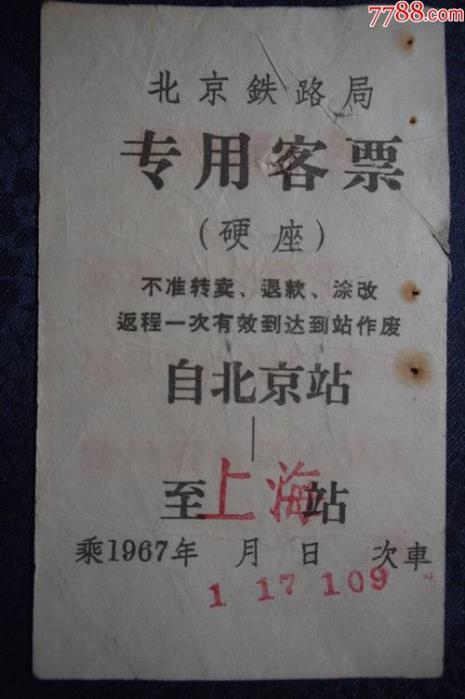 7788.com
北京鉄路局
专用客票
(硬座)
不准转卖、退款、涂改
返程一次有效到达到站作废
自北京站
至上海站
乘1967年 月 日 次車
1 17 109